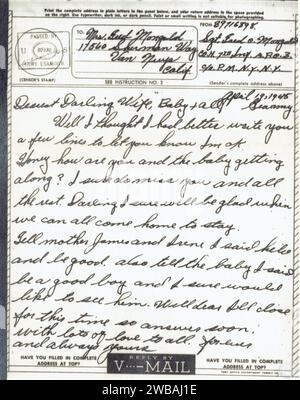 Print the complete address in plain letters in the panel below, and your return address in the space provided
on the right. Use typewriter, dark ink, or dark pencil. Faint or small writing is not suitable for photographing.
PASSED BY
U S
NAVAL
ARMY EXAMINER
(CENSOR'S STAMP)
TO
Mrs.
17560 Sherman Way
Van Nuys
Calif.
FROM
Sgt.
Co. H. Inf. A.P.O. 3
℅ P.M. N.Y. N.Y.
(Sender's complete address above)
SEE INSTRUCTION NO. 2
April 1945
Germany
Dearest Darling Wife, Baby & all
Well I thought I had better write you
a few lines to let you know I'm ok
Honey how are you and the baby getting
along? I sure do miss you and all
the rest. Darling I sure will be glad when
we can all come home to stay.
Tell mother James and Irene I said hello
and be good. also tell the baby I said
be a good boy and I sure would
like to see him. Well dear I'll close
for this time so answer soon.
with lots of love to all. forever
and always yours
HAVE YOU FILLED IN COMPLETE
ADDRESS AT TOP?
REPLY BY
V···—MAIL
HAVE YOU FILLED IN COMPLETE
ADDRESS AT TOP?
alamy
Image ID: 2WBAJ1E
www.alamy.com